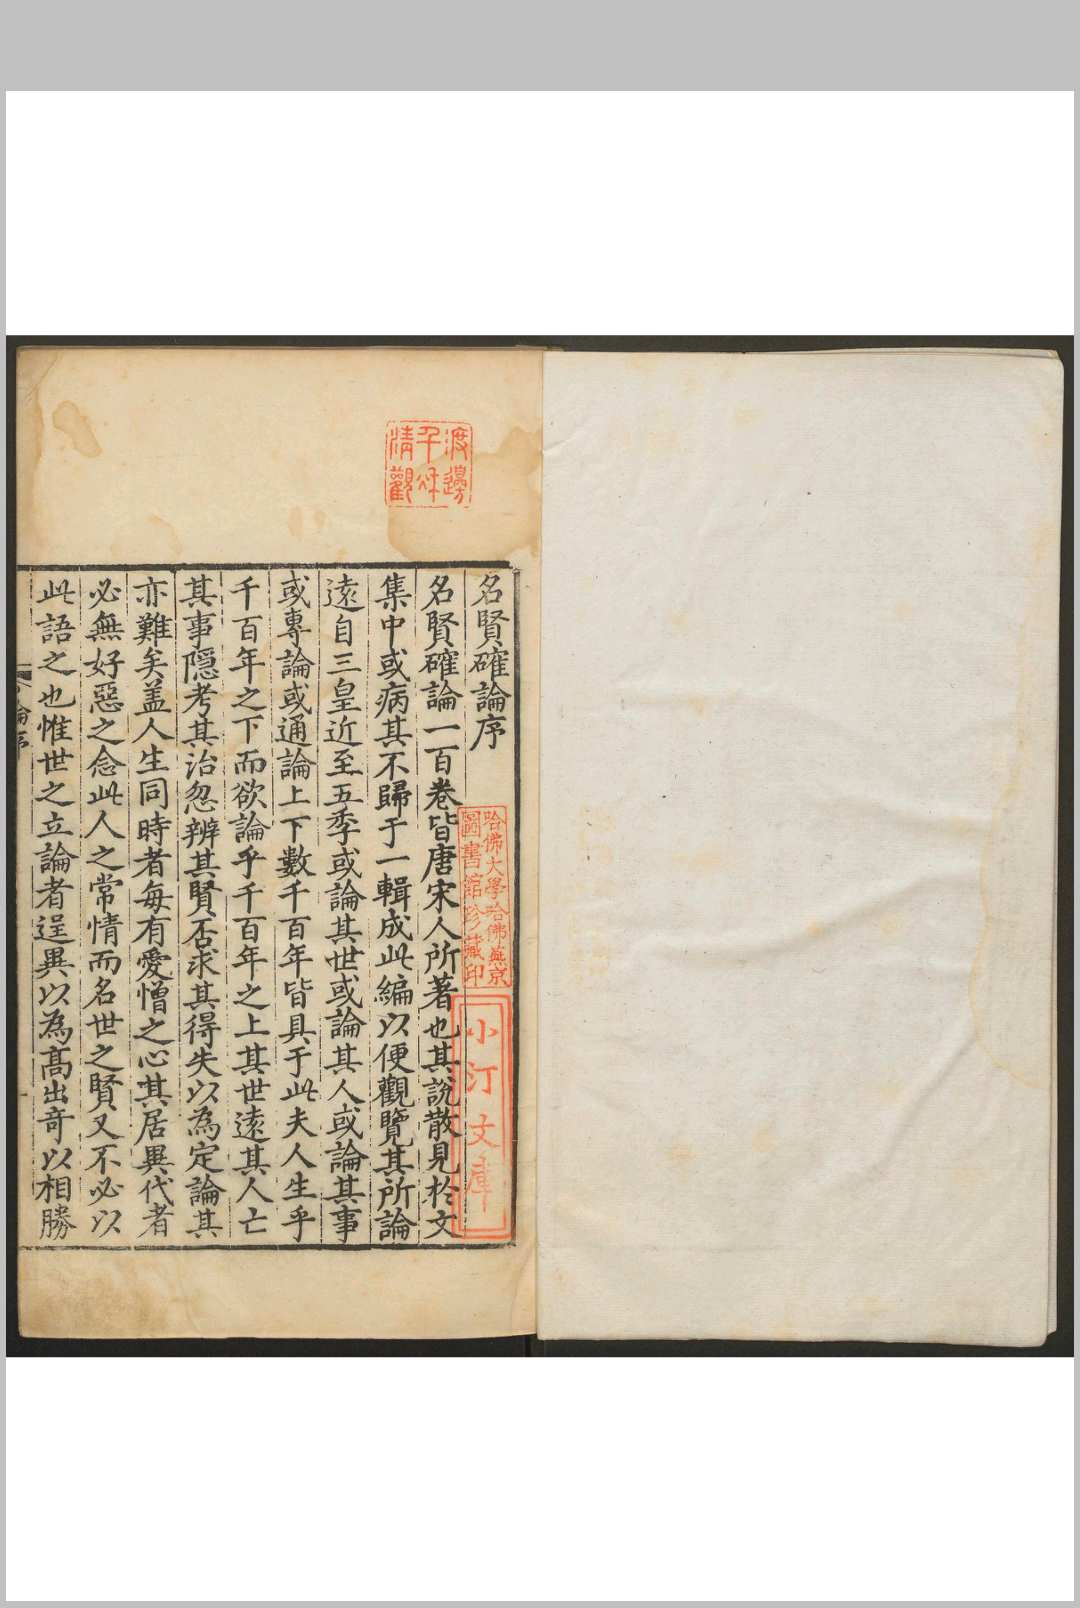 名賢確論序
名賢確論一百卷皆唐宋人所著也其說散見於文
集中或病其不歸于一輯成此編以便觀覽其所論
遠自三皇近至五季或論其世或論其人或論其事
或專論或通論上下數千百年皆具于此夫人生乎
千百年之下而欲論乎千百年之上其世遠其人亡
其事隠考其治忽辨其賢否求其得失以為定論其
亦難矣盖人生同時者每有愛憎之心其居異代者
必無好惡之念此人之常情而名世之賢又不必以
此語之也惟世之立論者逞異以為髙出竒以相勝
論序
渡邊
千秋
清觀
哈佛大學哈佛燕京
圖書館珍藏印
小汀文庫